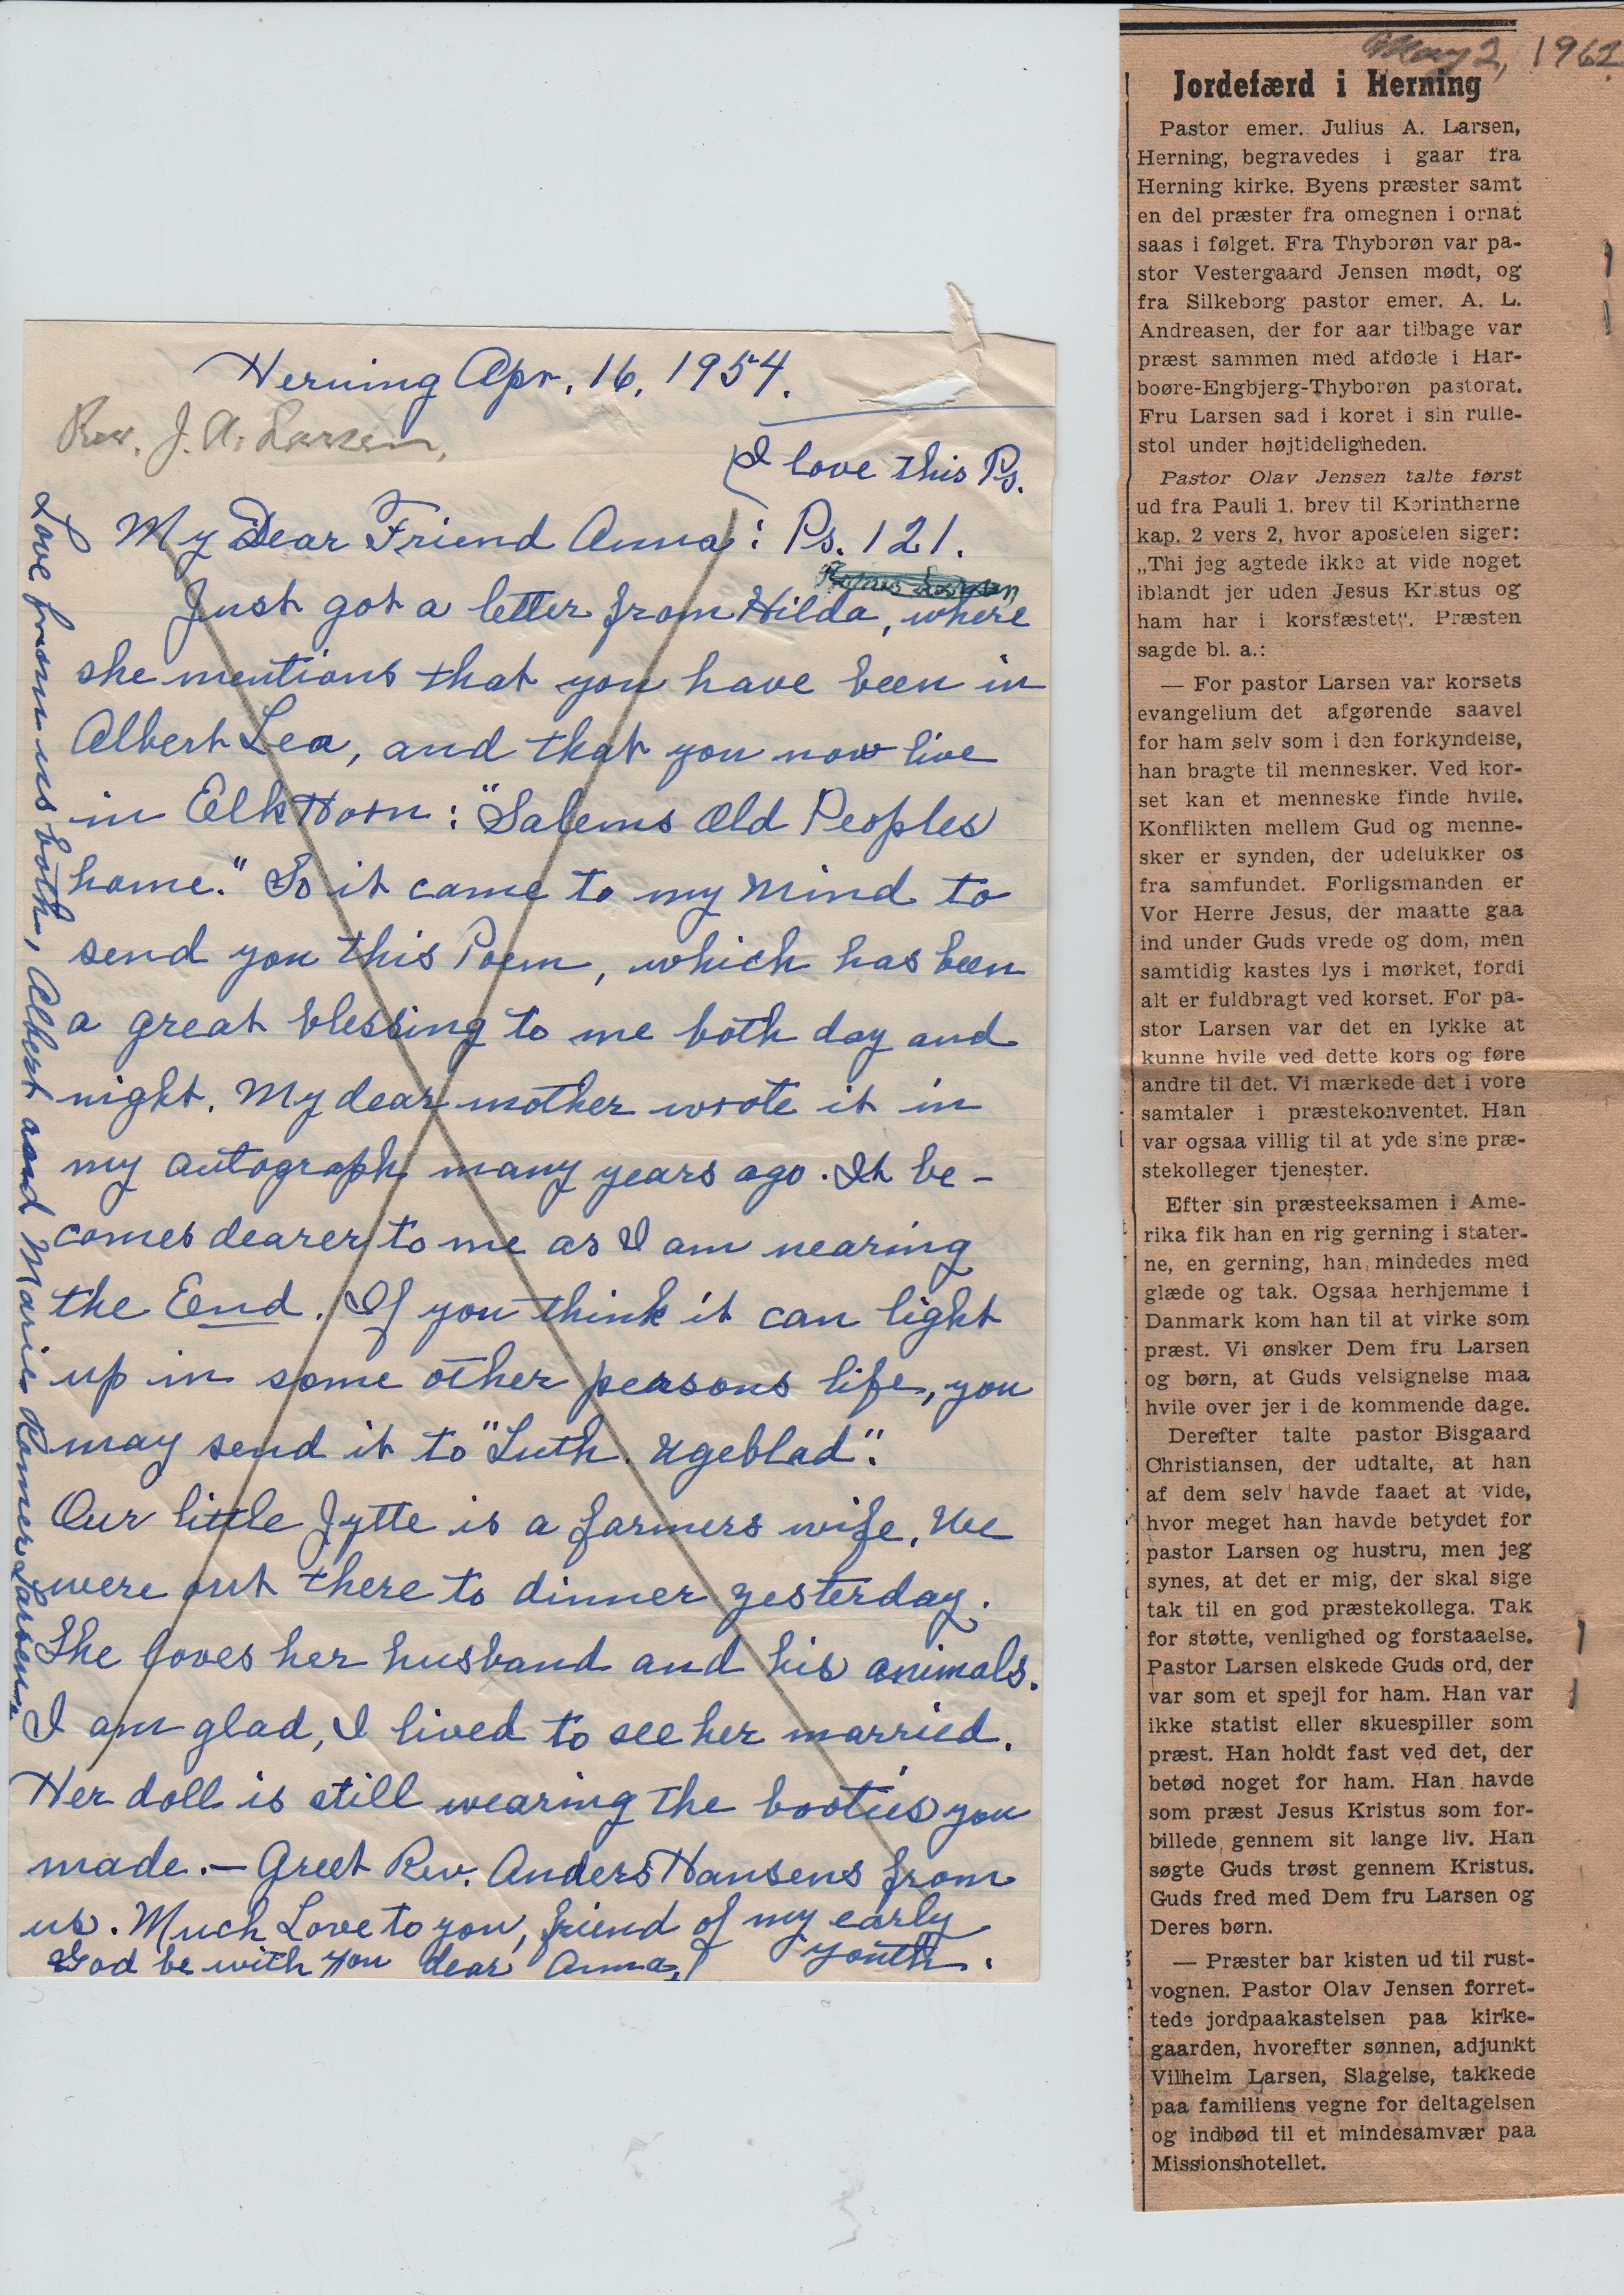 Herning Apr. 16, 1954.
Rev. J. A. Larsen,
I love this Ps.
My Dear Friend Anna: Ps. 121.
Just got a letter from Hilda, where
she mentions that you have been in
Albert Lea, and that you now live
in Elk Horn: "Salems Old Peoples
home." So it came to my mind to
send you this Poem, which has been
a great blessing to me both day and
night. My dear mother wrote it in
my autograph many years ago. It be-
comes dearer to me as I am nearing
the End. If you think it can light
up in some other persons life, you
may send it to "Luth. Ugeblad".
Our little Jytte is a farmers wife. We
were out there to dinner yesterday.
She loves her husband and his animals.
I am glad, I lived to see her married.
Her doll is still wearing the booties you
made. — Greet Rev. Anders Hansens from
us. Much Love to you, friend of my early
youth.
God be with you dear Anna,
Love from us both, Albert and Marie Romer Larsen.
May 2, 1962
Jordefærd i Herning
Pastor emer. Julius A. Larsen,
Herning, begravedes i gaar fra
Herning kirke. Byens præster samt
en del præster fra omegnen i ornat
saas i følget. Fra Thyborøn var pa-
stor Vestergaard Jensen mødt, og
fra Silkeborg pastor emer. A. L.
Andreasen, der for aar tilbage var
præst sammen med afdøde i Har-
boøre-Engbjerg-Thyborøn pastorat.
Fru Larsen sad i koret i sin rulle-
stol under højtideligheden.
Pastor Olav Jensen talte først
ud fra Pauli 1. brev til Korintherne
kap. 2 vers 2, hvor apostelen siger:
„Thi jeg agtede ikke at vide noget
iblandt jer uden Jesus Kristus og
ham har i korsfæstet". Præsten
sagde bl. a.:
— For pastor Larsen var korsets
evangelium det afgørende saavel
for ham selv som i den forkyndelse,
han bragte til mennesker. Ved kor-
set kan et menneske finde hvile.
Konflikten mellem Gud og menne-
sker er synden, der udelukker os
fra samfundet. Forligsmanden er
Vor Herre Jesus, der maatte gaa
ind under Guds vrede og dom, men
samtidig kastes lys i mørket, fordi
alt er fuldbragt ved korset. For pa-
stor Larsen var det en lykke at
kunne hvile ved dette kors og føre
andre til det. Vi mærkede det i vore
samtaler i præstekonventet. Han
var ogsaa villig til at yde sine præ-
stekolleger tjenester.
Efter sin præsteeksamen i Ame-
rika fik han en rig gerning i stater-
ne, en gerning, han mindedes med
glæde og tak. Ogsaa herhjemme i
Danmark kom han til at virke som
præst. Vi ønsker Dem fru Larsen
og børn, at Guds velsignelse maa
hvile over jer i de kommende dage.
Derefter talte pastor Bisgaard
Christiansen, der udtalte, at han
af dem selv havde faaet at vide,
hvor meget han havde betydet for
pastor Larsen og hustru, men jeg
synes, at det er mig, der skal sige
tak til en god præstekollega. Tak
for støtte, venlighed og forstaaelse.
Pastor Larsen elskede Guds ord, der
var som et spejl for ham. Han var
ikke statist eller skuespiller som
præst. Han holdt fast ved det, der
betød noget for ham. Han havde
som præst Jesus Kristus som for-
billede gennem sit lange liv. Han
søgte Guds trøst gennem Kristus.
Guds fred med Dem fru Larsen og
Deres børn.
— Præster bar kisten ud til rust-
vognen. Pastor Olav Jensen forret-
tede jordpaakastelsen paa kirke-
gaarden, hvorefter sønnen, adjunkt
Vilhelm Larsen, Slagelse, takkede
paa familiens vegne for deltagelsen
og indbød til et mindesamvær paa
Missionshotellet.